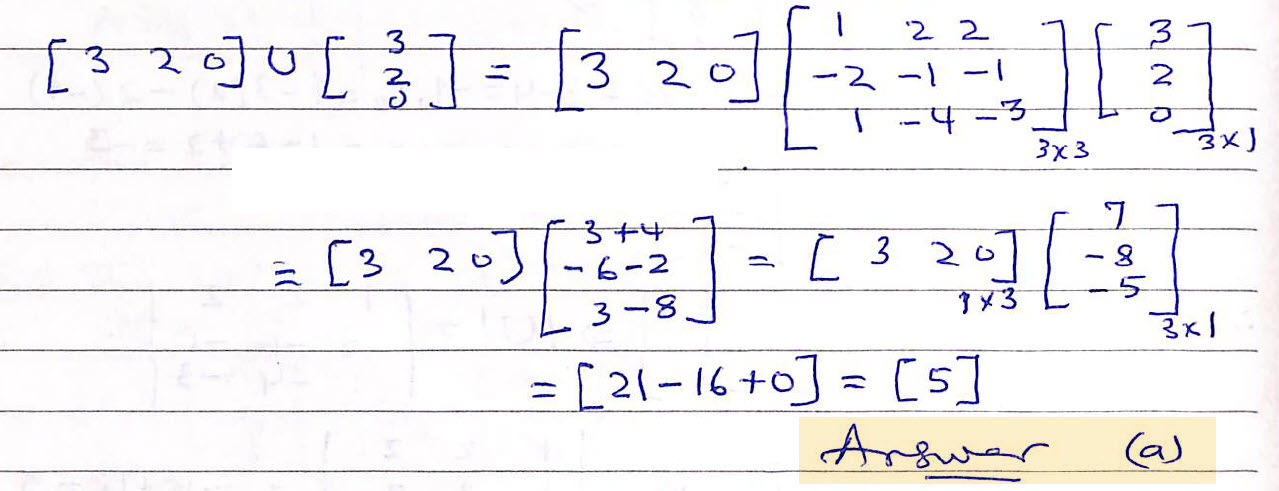 [3 2 0] U [3 2 0] = [3 2 0] [1 2 2 -2 -1 -1 1 -4 -3]3×3 [3 2 0]3×1
= [3 2 0] [3+4 -6-2 3-8] = [3 2 0]1×3 [7 -8 -5]3×1
= [21-16+0] = [5]
Answer (a)